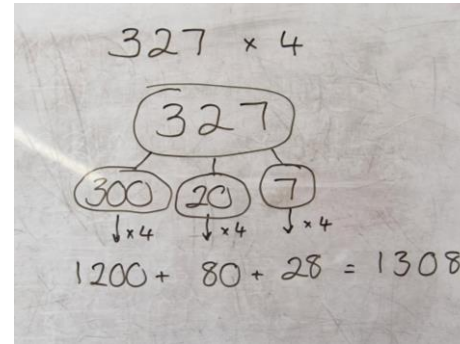 327 × 4
327
300 20 7
↓×4 ↓×4 ↓×4
1200 + 80 + 28 = 1308